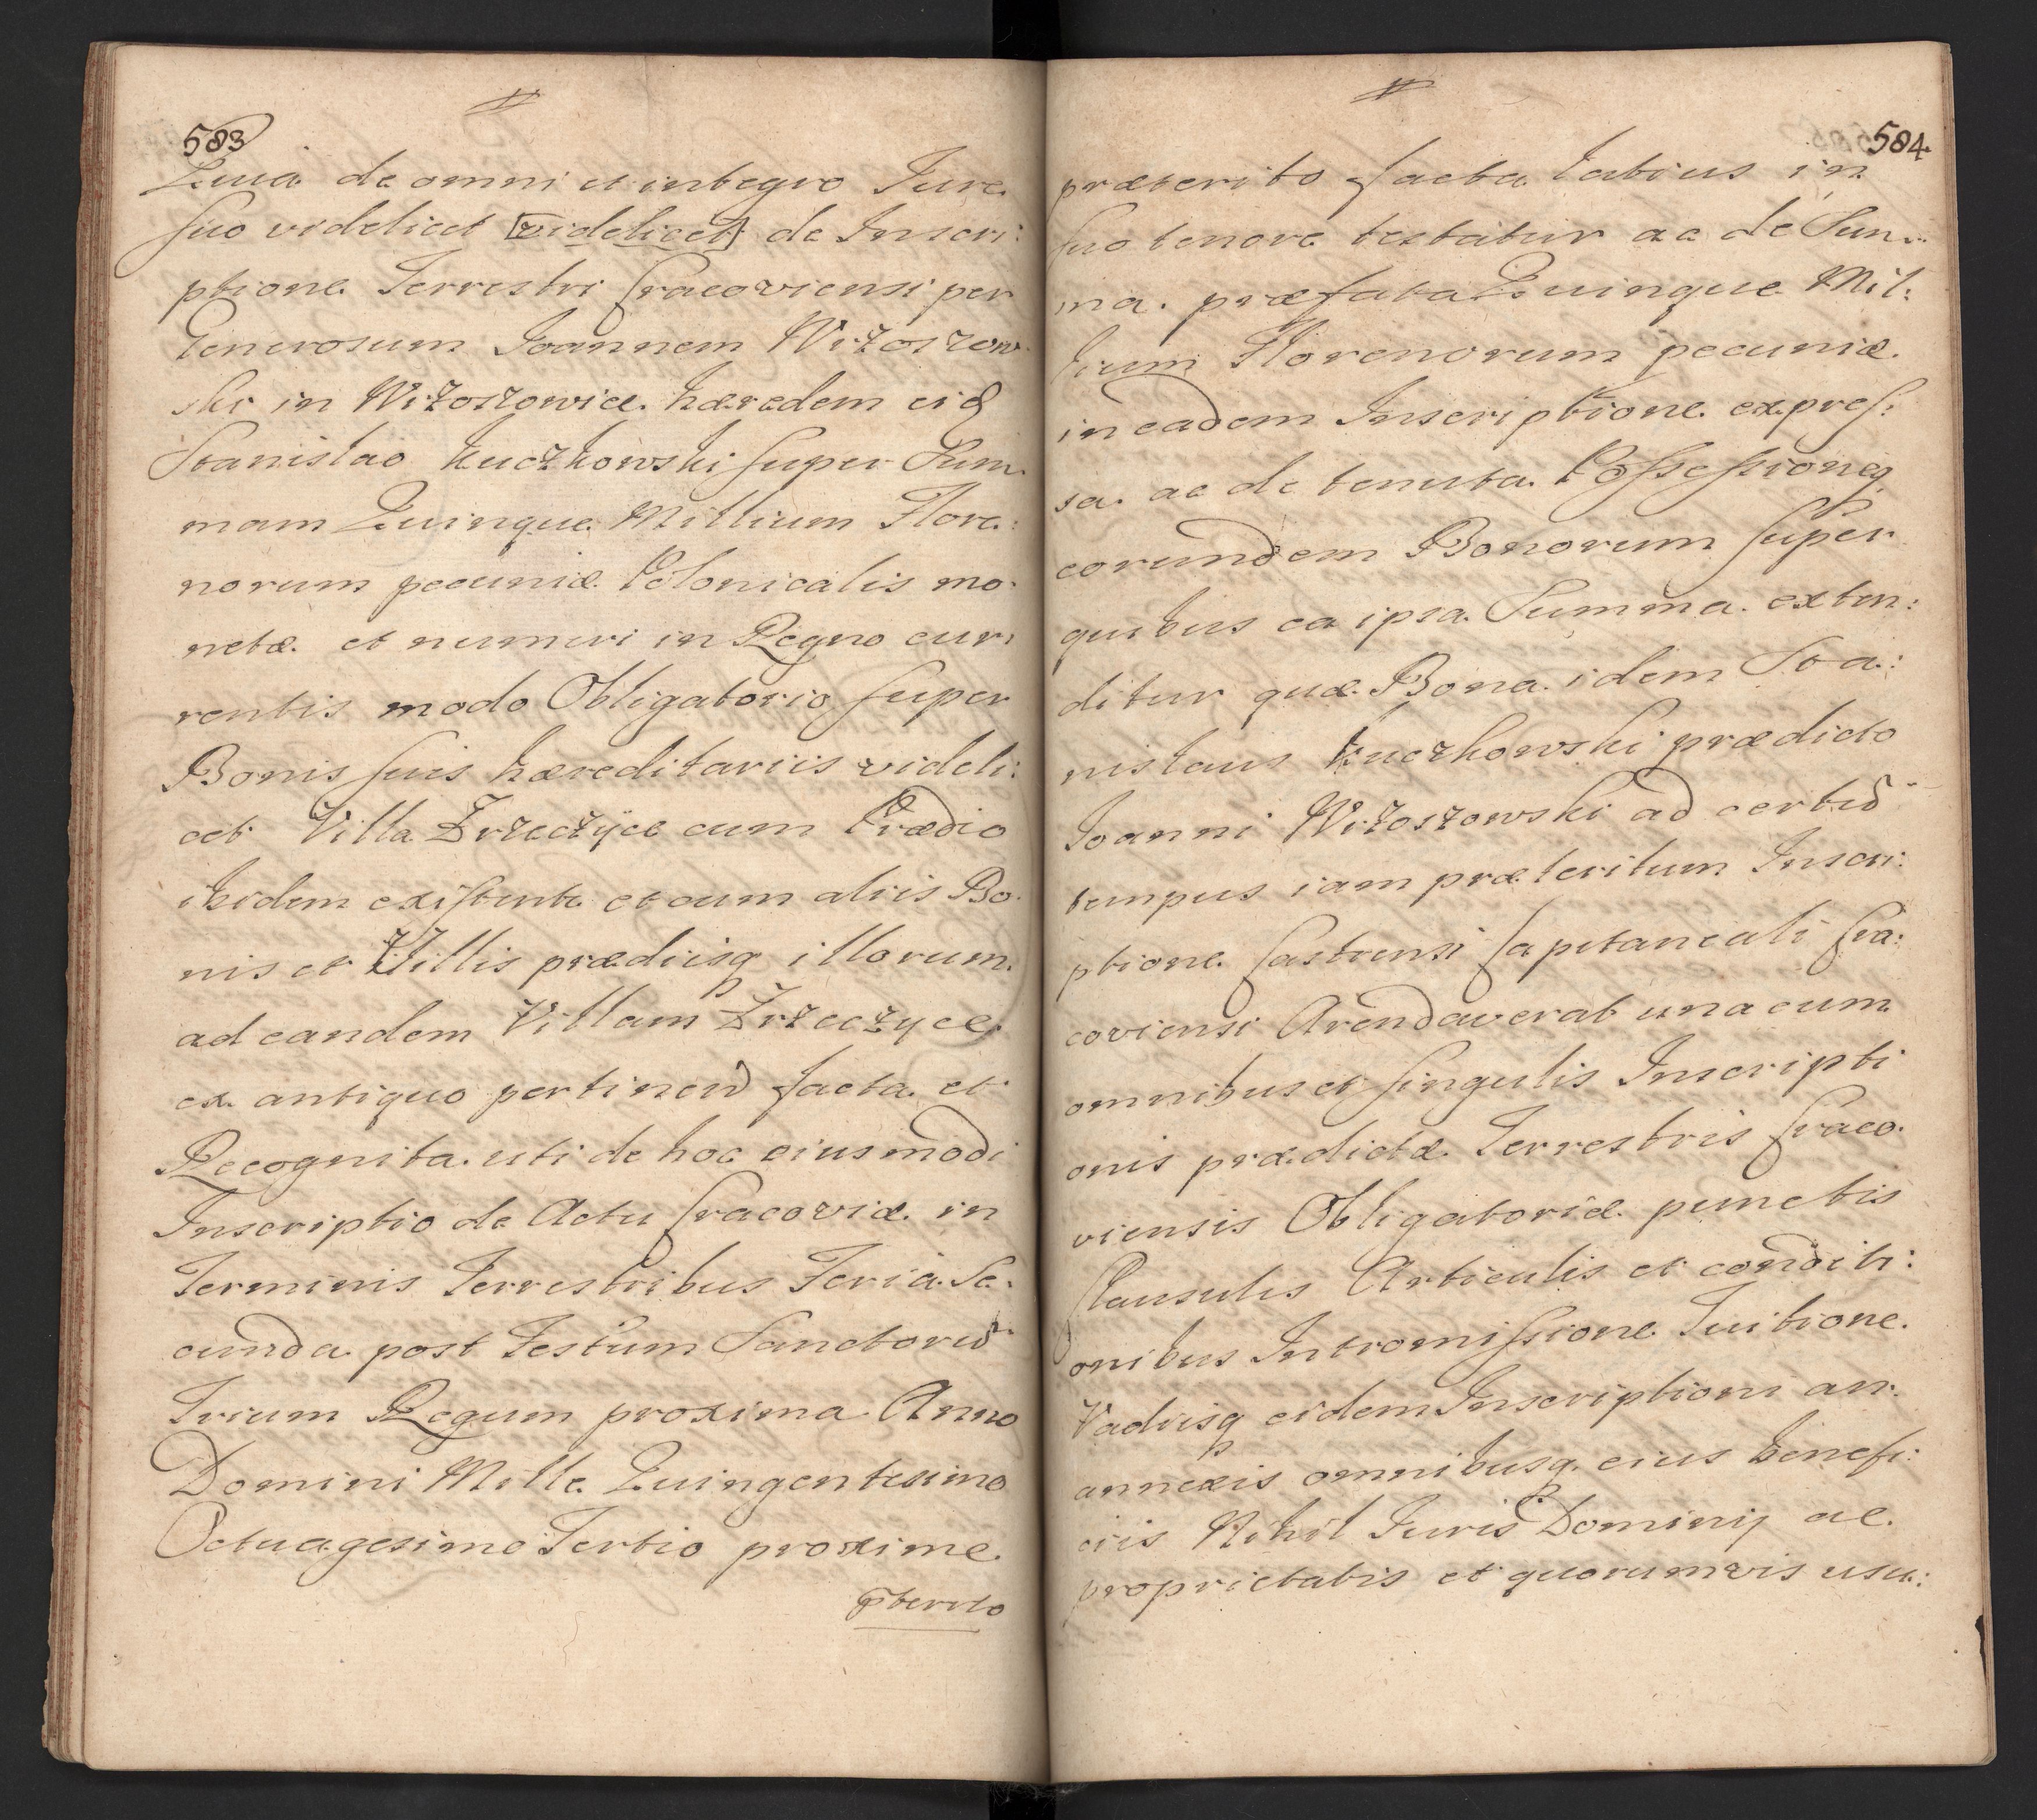 583
Quia de omni et integro Jure
suo videlicet [videlicet] de Inscri:
ptione Terrestri Cracoviensi per
Generosum Joannem Wrzoszow
ski in Wrzoszowice hæredem eid
Stanislao Kuczkowski super Sum
mam Quinque Millium Flore:
norum pecuniæ Polonicalis mo
netæ et numeri in Regno cur
rentis modo Obligatorio super
Bonis suis hæreditariis videli:
cet Villa Zrzeczyce cum Prædio
ibidem existente et cum aliis Bo
nis et Villis prædiisq illorum
ad eandem Villam Zrzeczyce
ex antiquo pertinen facta et
Recognita uti de hoc eiusmodi
Inscriptio de Actu Cracoviæ in
Terminis Terrestribus Feria Se:
cunda post Festum Sanctoru
Trium Regum proxima Anno
Domini Mille Quingentesimo
Octuagesimo Tertio proxime
pterito
584.
præterito facta latius in
suo tenore testatur ac de Sum:
ma præfata Quinque Mil:
lium Florenorum pecuniæ
in eadem Inscriptione expres:
sa ac de tenuta Possessioneq
eorundem Bonorum super
quibus ea ipsa Summa exten:
ditur quæ Bona idem Sta:
nislaus Kuczkowski prædicto
Joanni Wrzoszowski ad certu
tempus iam præteritum Inscri:
ptione Castrensi Capitaneali Cra:
coviensi Arendaverat una cum
omnibus et singulis Inscripti
onis prædictæ Terrestris Craco
viensis Obligatoriæ punctis
Clausulis Articulis et conditi:
onibus Intromissione Tuitione
Vadiisq eidem Inscriptioni an:
annexis omnibusq eius benefi:
ciis Nihil Juris Dominij ac
proprietatis et quorumvis usu: